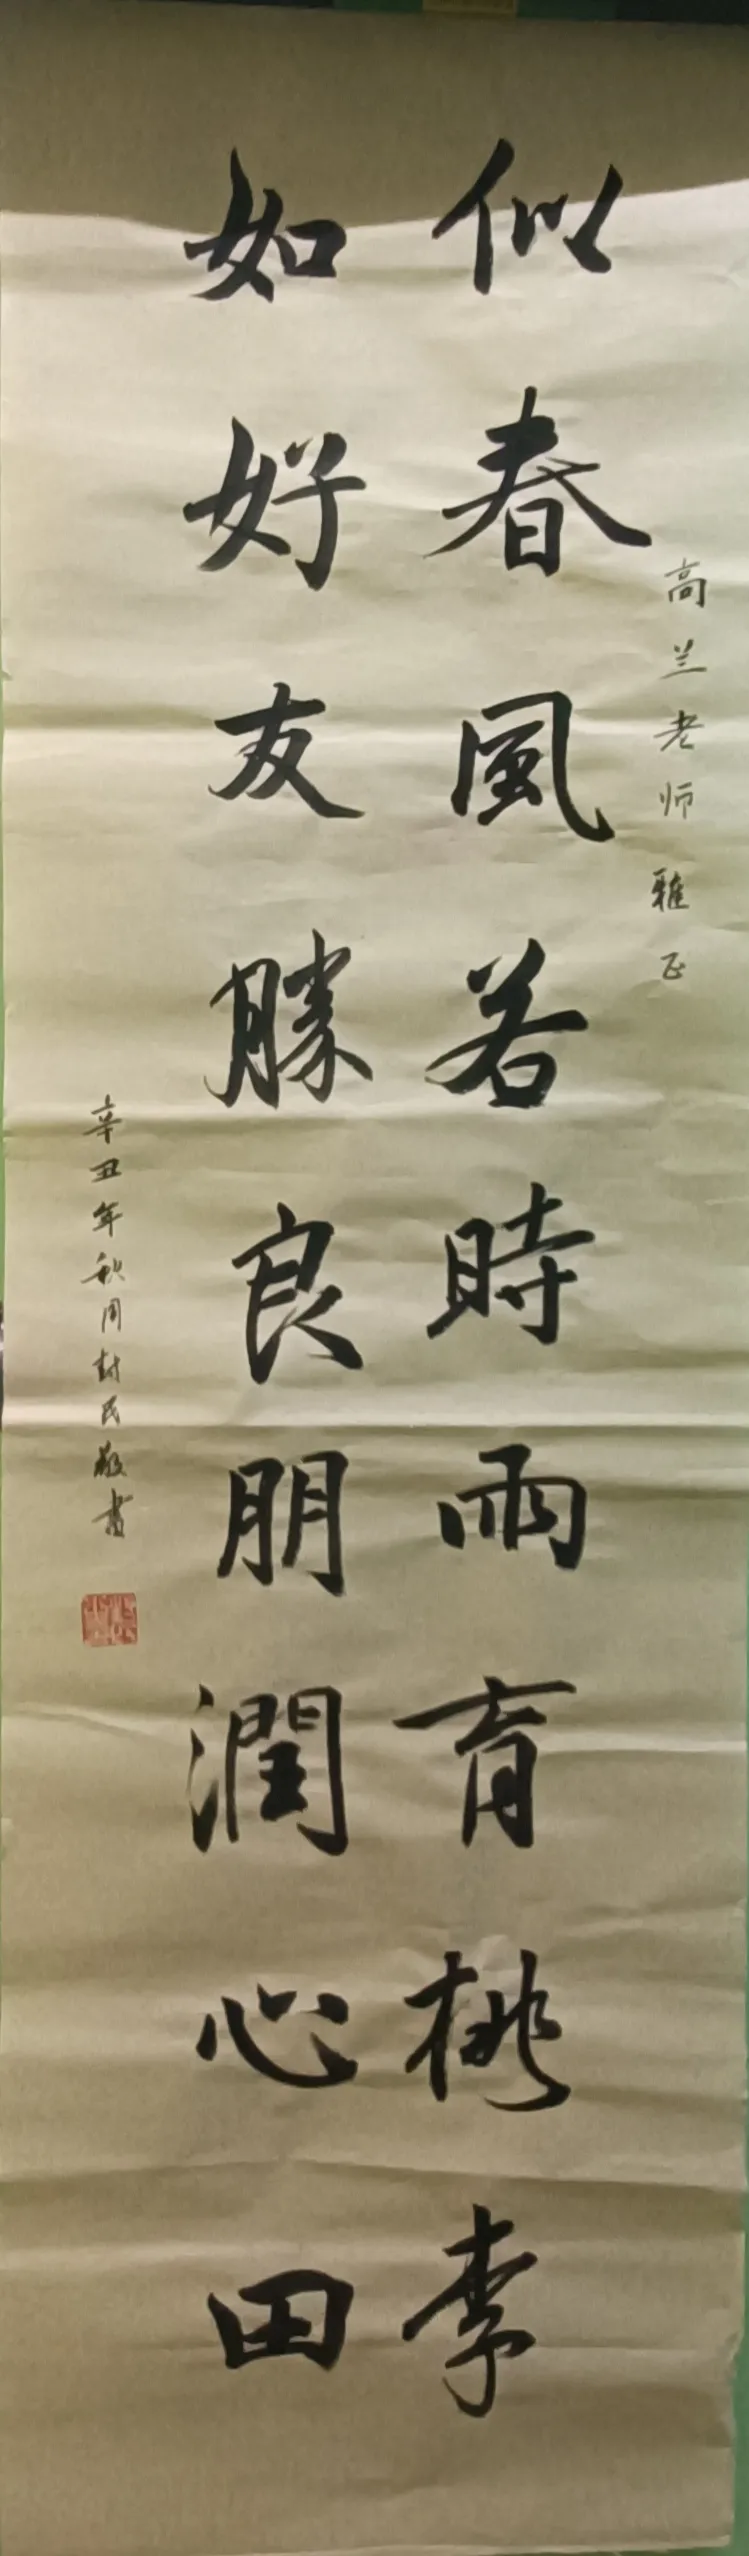 高兰老师雅正
似春風若時雨育桃李
如好友勝良朋潤心田
辛丑年秋周封民敬書